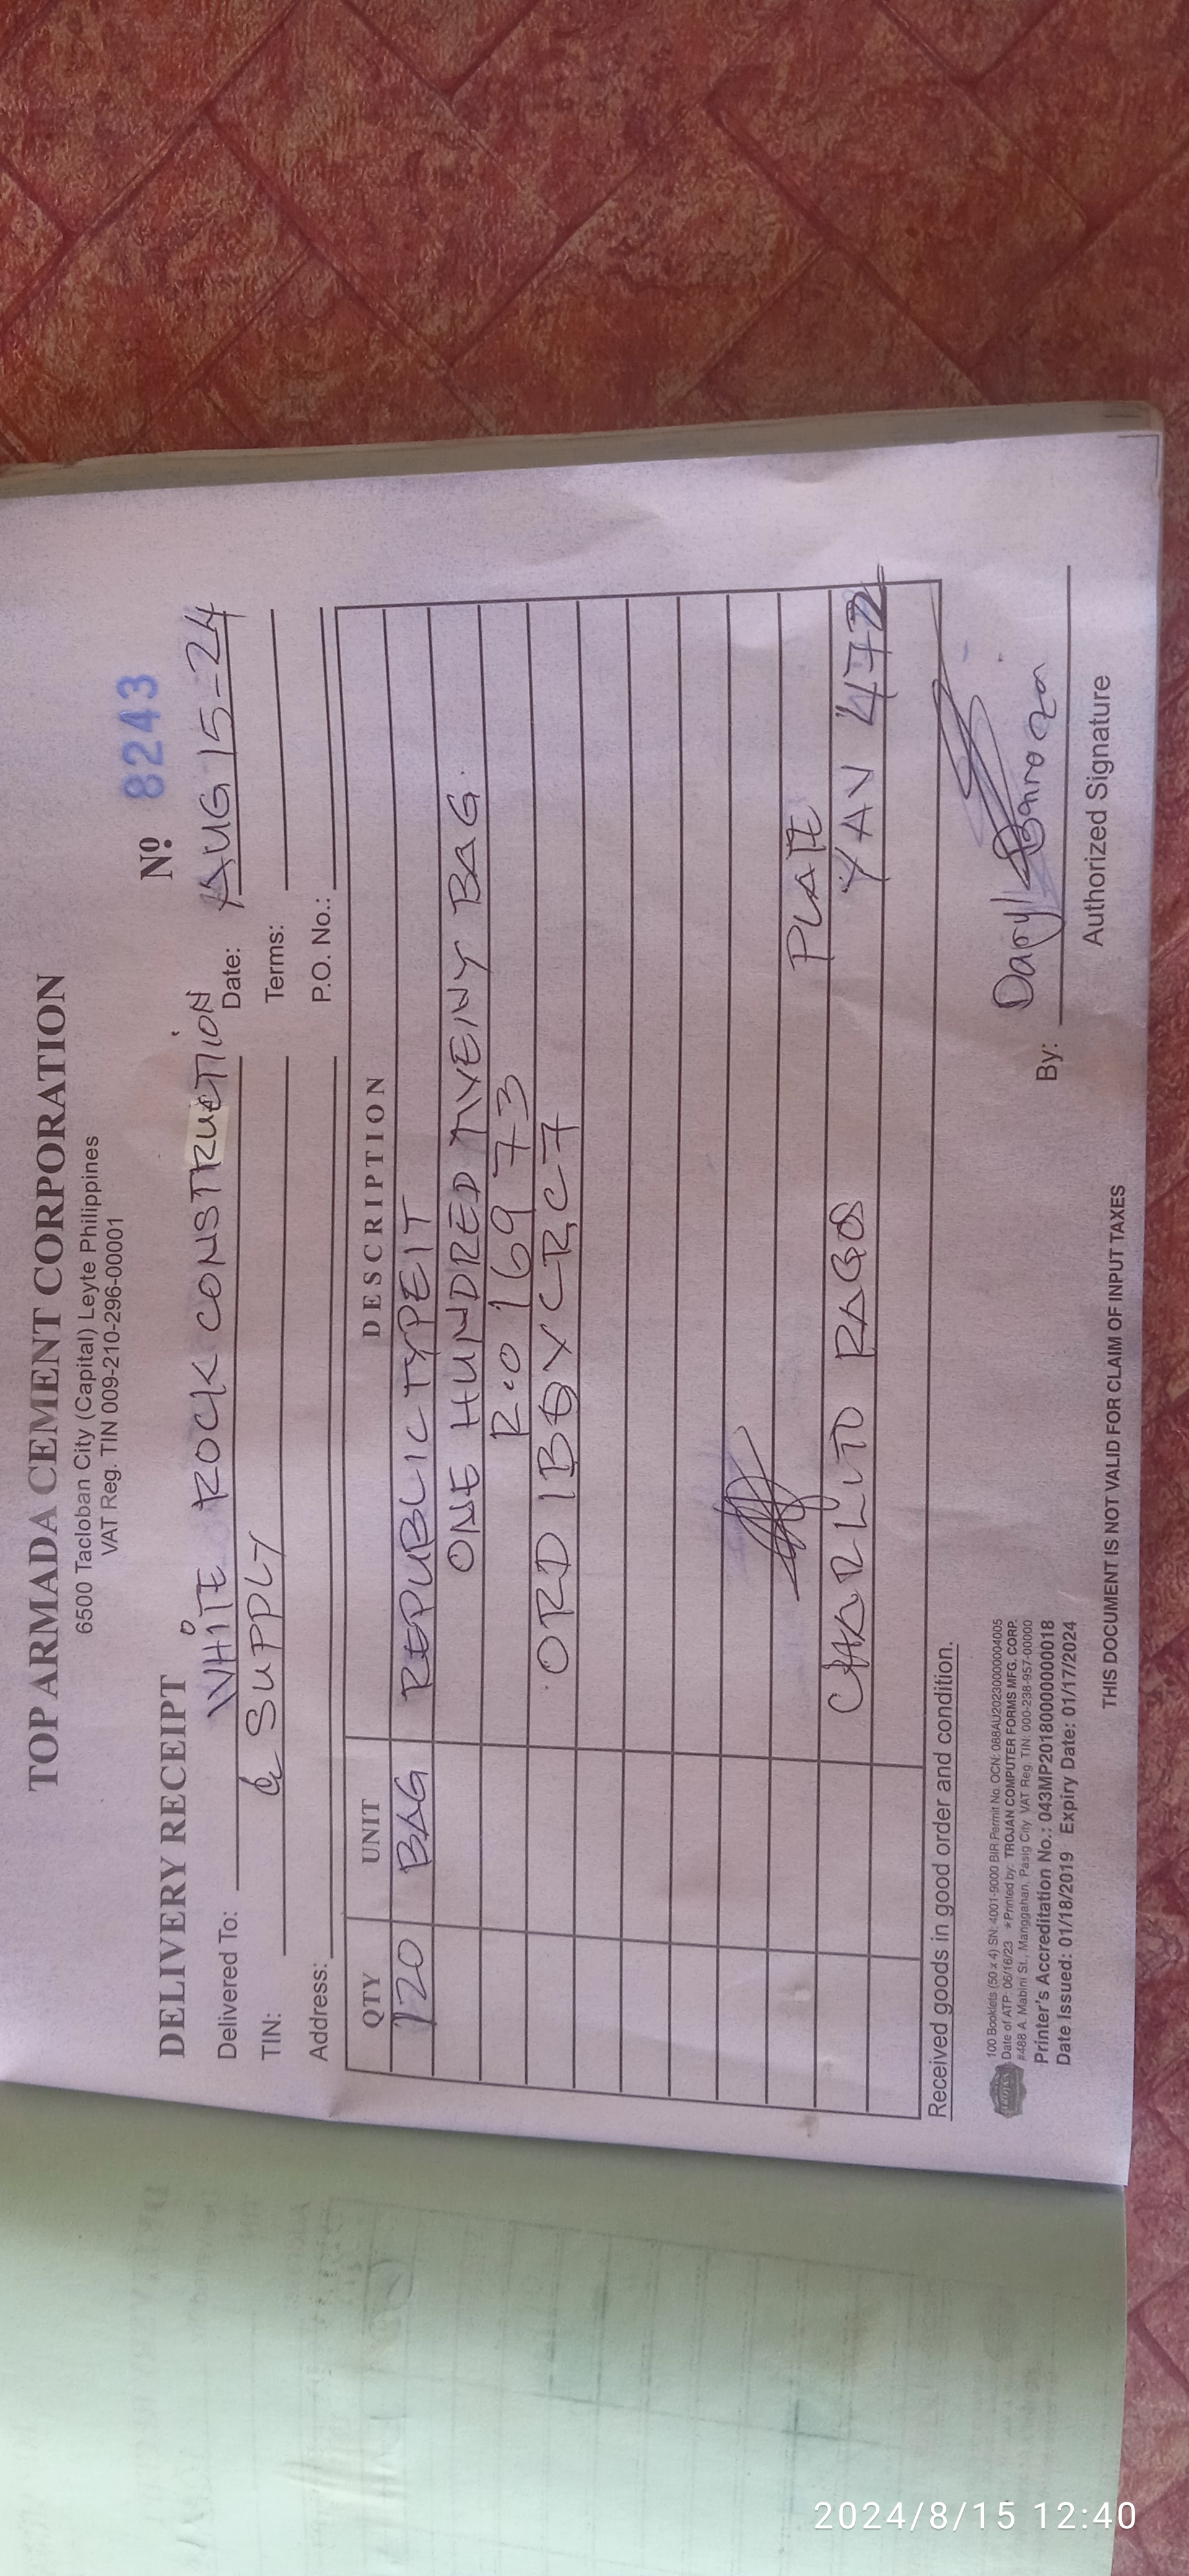 TOP ARMADA CEMENT CORPORATION
6500 Tacloban City (Capital) Leyte Philippines
VAT Reg. TIN 009-210-296-00001
DELIVERY RECEIPT
Nº 8243
Delivered To: WHITE ROCK CONSTRUCTION
Date: AUG 15-24
TIN: & SUPPLY
Terms:
Address:
P.O. No.:
QTY UNIT DESCRIPTION
120 BAG REPUBLIC TYPEIT
ONE HUNDRED TWENY BAG.
R.O 16973
ORD 1BQXCRC7
PLATE
CHARLITO RAGOS YAV 472
Received goods in good order and condition.
100 Booklets (50 x 4) SN: 4001-9000 BIR Permit No. OCN: 088AU20230000004005
Date of ATP: 06/16/23 *Printed by: TROJAN COMPUTER FORMS MFG. CORP.
#488 A. Mabini St., Manggahan, Pasig City VAT Reg. TIN: 000-238-957-00000
Printer's Accreditation No.: 043MP20180000000018
Date Issued: 01/18/2019 Expiry Date: 01/17/2024
By: Daryl
Authorized Signature
THIS DOCUMENT IS NOT VALID FOR CLAIM OF INPUT TAXES
2024/8/15 12:40